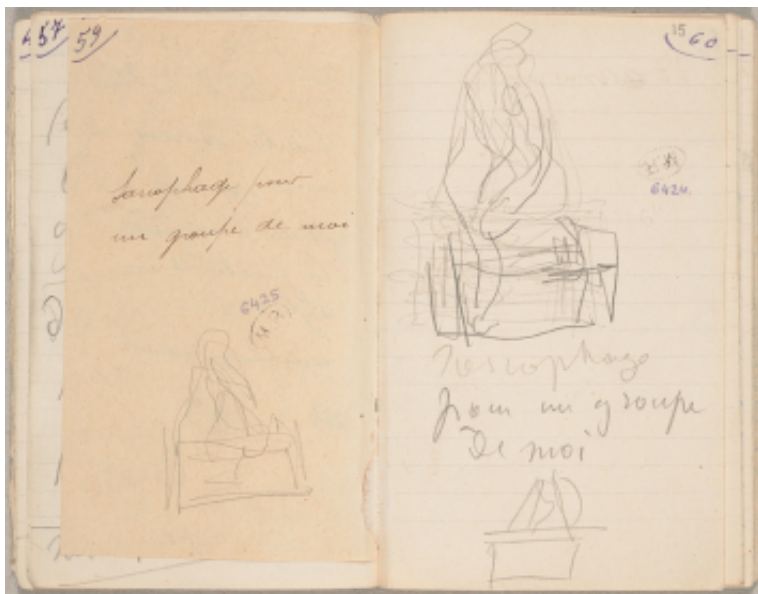 57
59
Sarcophage pour
un groupe de moi
6425
15
60
6424
Sarcophage
pour un groupe
de moi